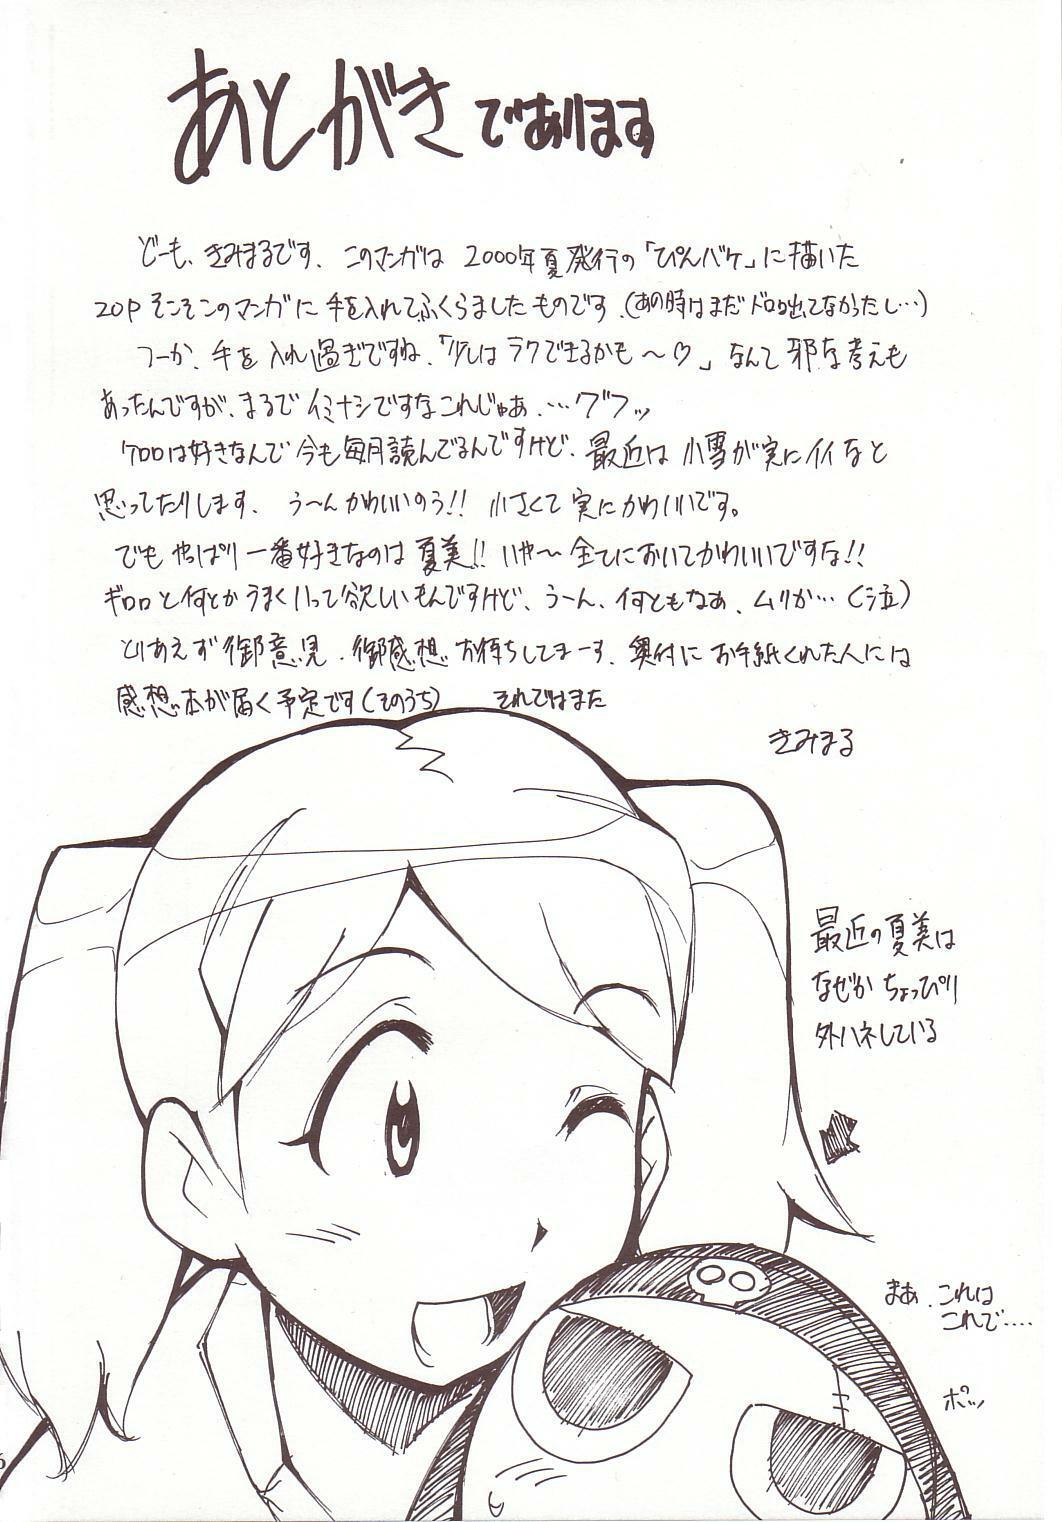 あとがきであります
どーも、きみまるです、このマンガは2000年夏発行の「ぴんバケ」に描いた
20Pそこそこのマンガに手を入れてふくらましたものです。(あの時はまだドロロ出てなかったし…)
つーか、手を入れ過ぎですね、「少しはラクできるかも〜♡」なんて邪な考えも
あったんですが、まるでイミナシですなこれじゃあ、…グフッ
ケロロは好きなんで今も毎月読んでるんですけど、最近は小雪が実にイイなと
思ってたりします、う〜んかわいいのう!!小さくて実にかわいいです。
でもやっぱり一番好きなのは夏美!!いや〜全てにおいてかわいいですな!!
ギロロと何とかうまくいって欲しいもんですけど、う〜ん、何ともなあ、ムリか…(泣)
とりあえず御意見、御感想お待ちしてまーす、奥付にお手紙くれた人には
感想本が届く予定です(そのうち) それではまた
きみまる
最近の夏美は
なぜかちょっぴり
外ハネしている
まぁ、これは
これで‥‥
ポッ